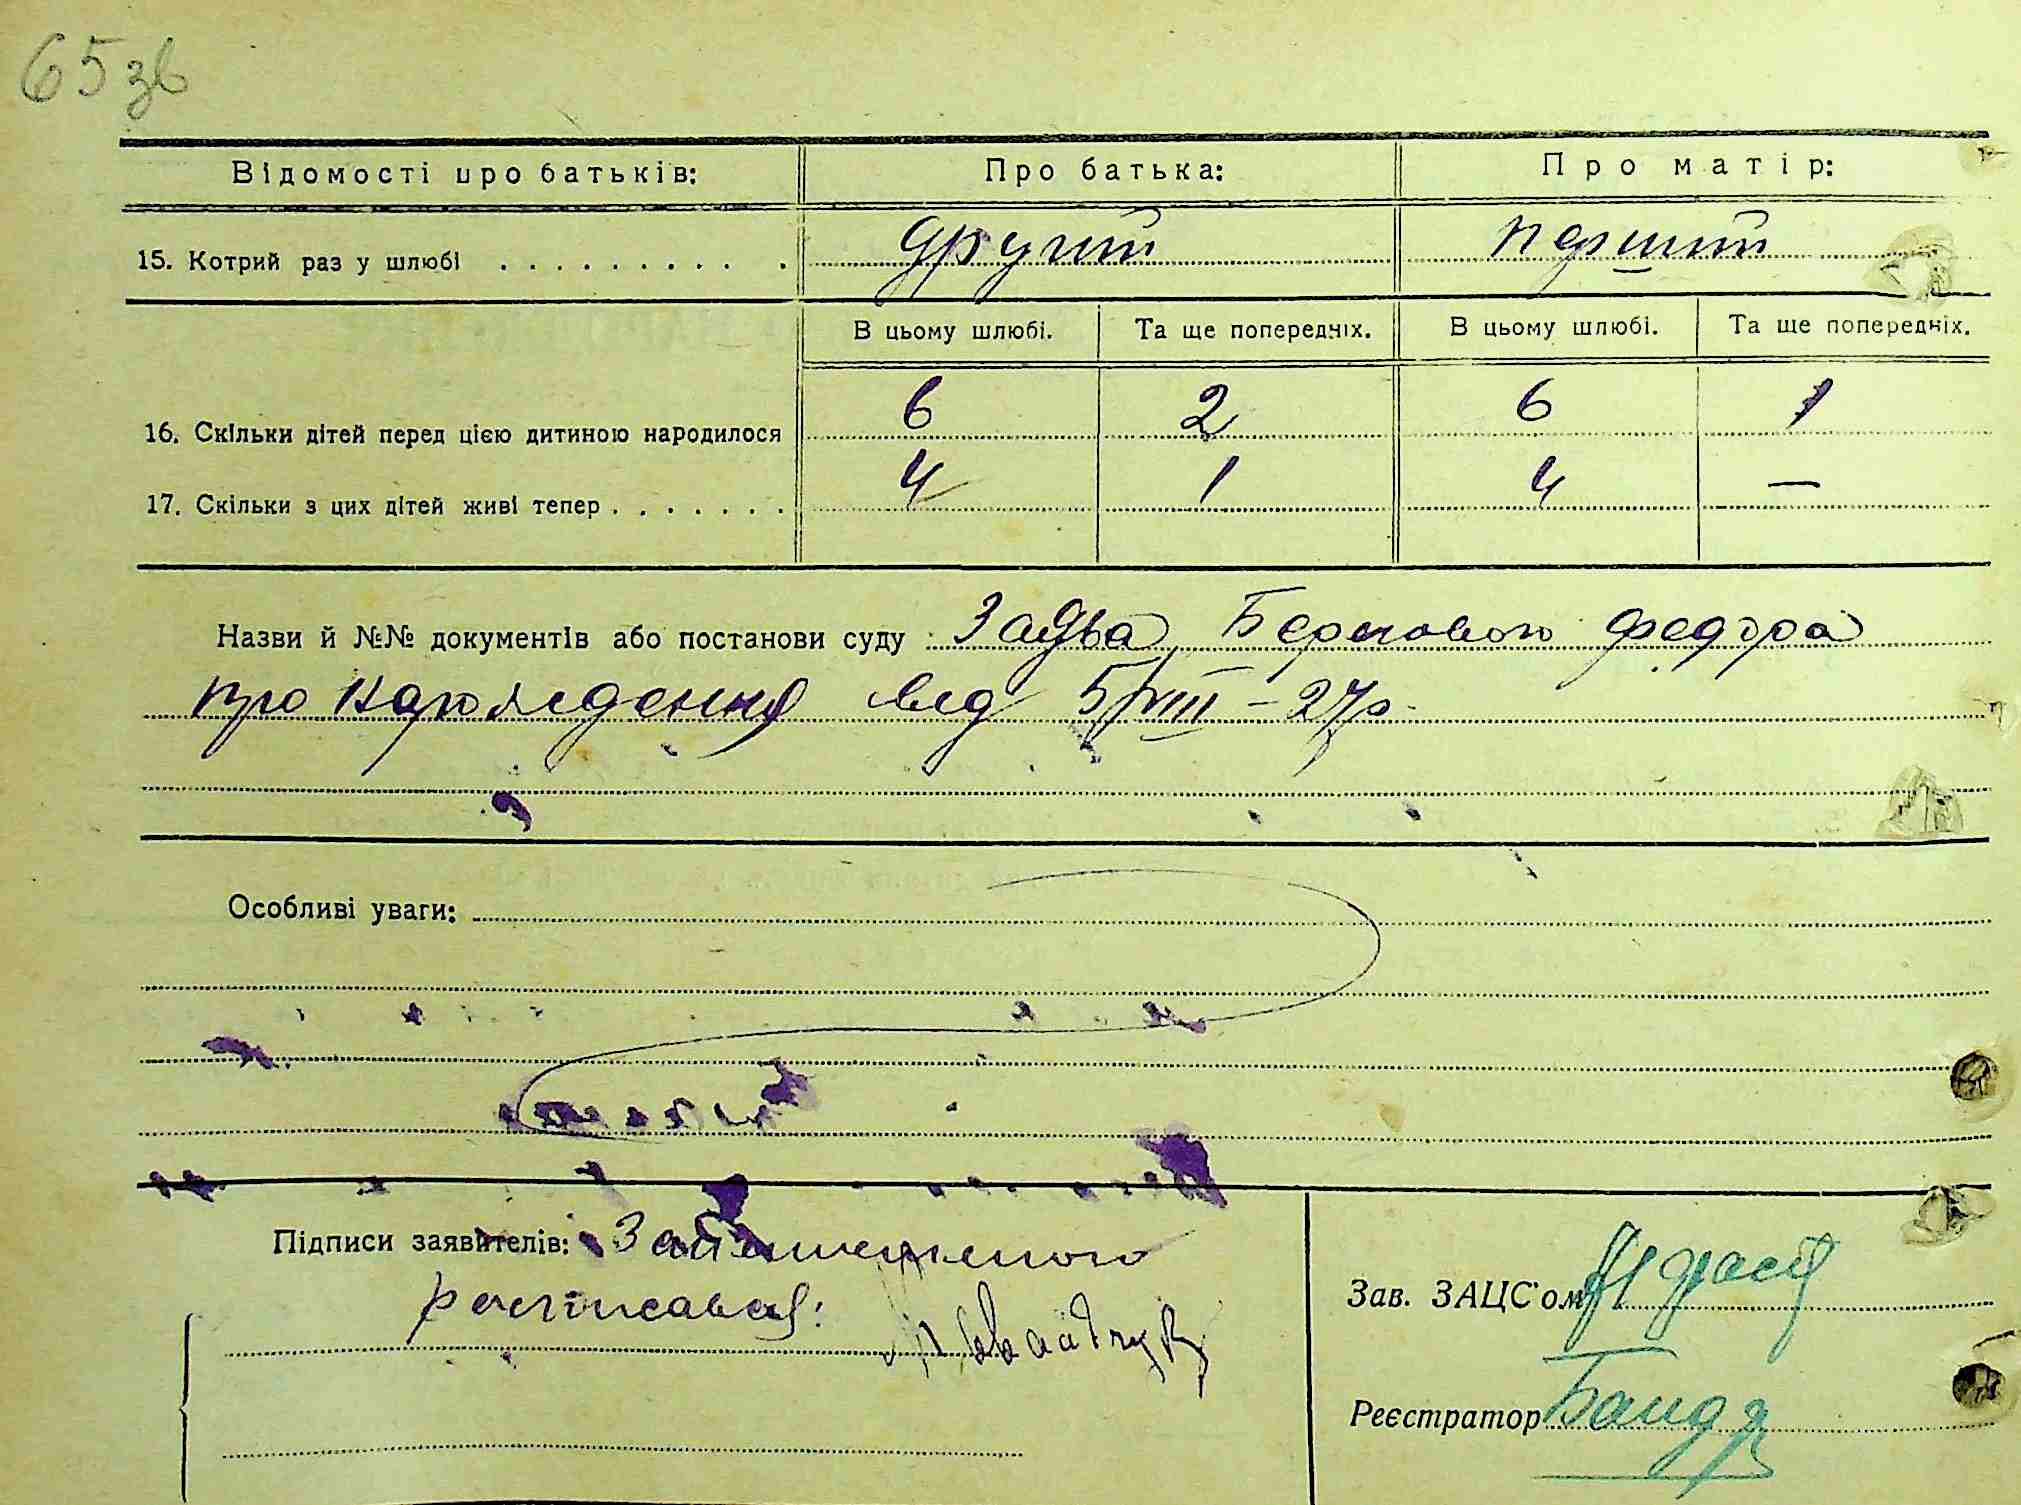 65 зв
Відомості про батьків: Про батька: Про матір:
15. Котрий раз у шлюбі . . . . . . . . . . другий перший
В цьому шлюбі. Та ще попередніх. В цьому шлюбі. Та ще попередніх.
16. Скільки дітей перед цією дитиною народилося 6 2 6 1
17. Скільки з цих дітей живі тепер . . . . . . . 4 1 4 —
Назви й №№ документів або постанови суду Заява Федора
про народження від 5/VIII – 27 р.
Особливі уваги:
Підписи заявителів: За
росписався:
Зав. ЗАЦС'ом
Реєстратор